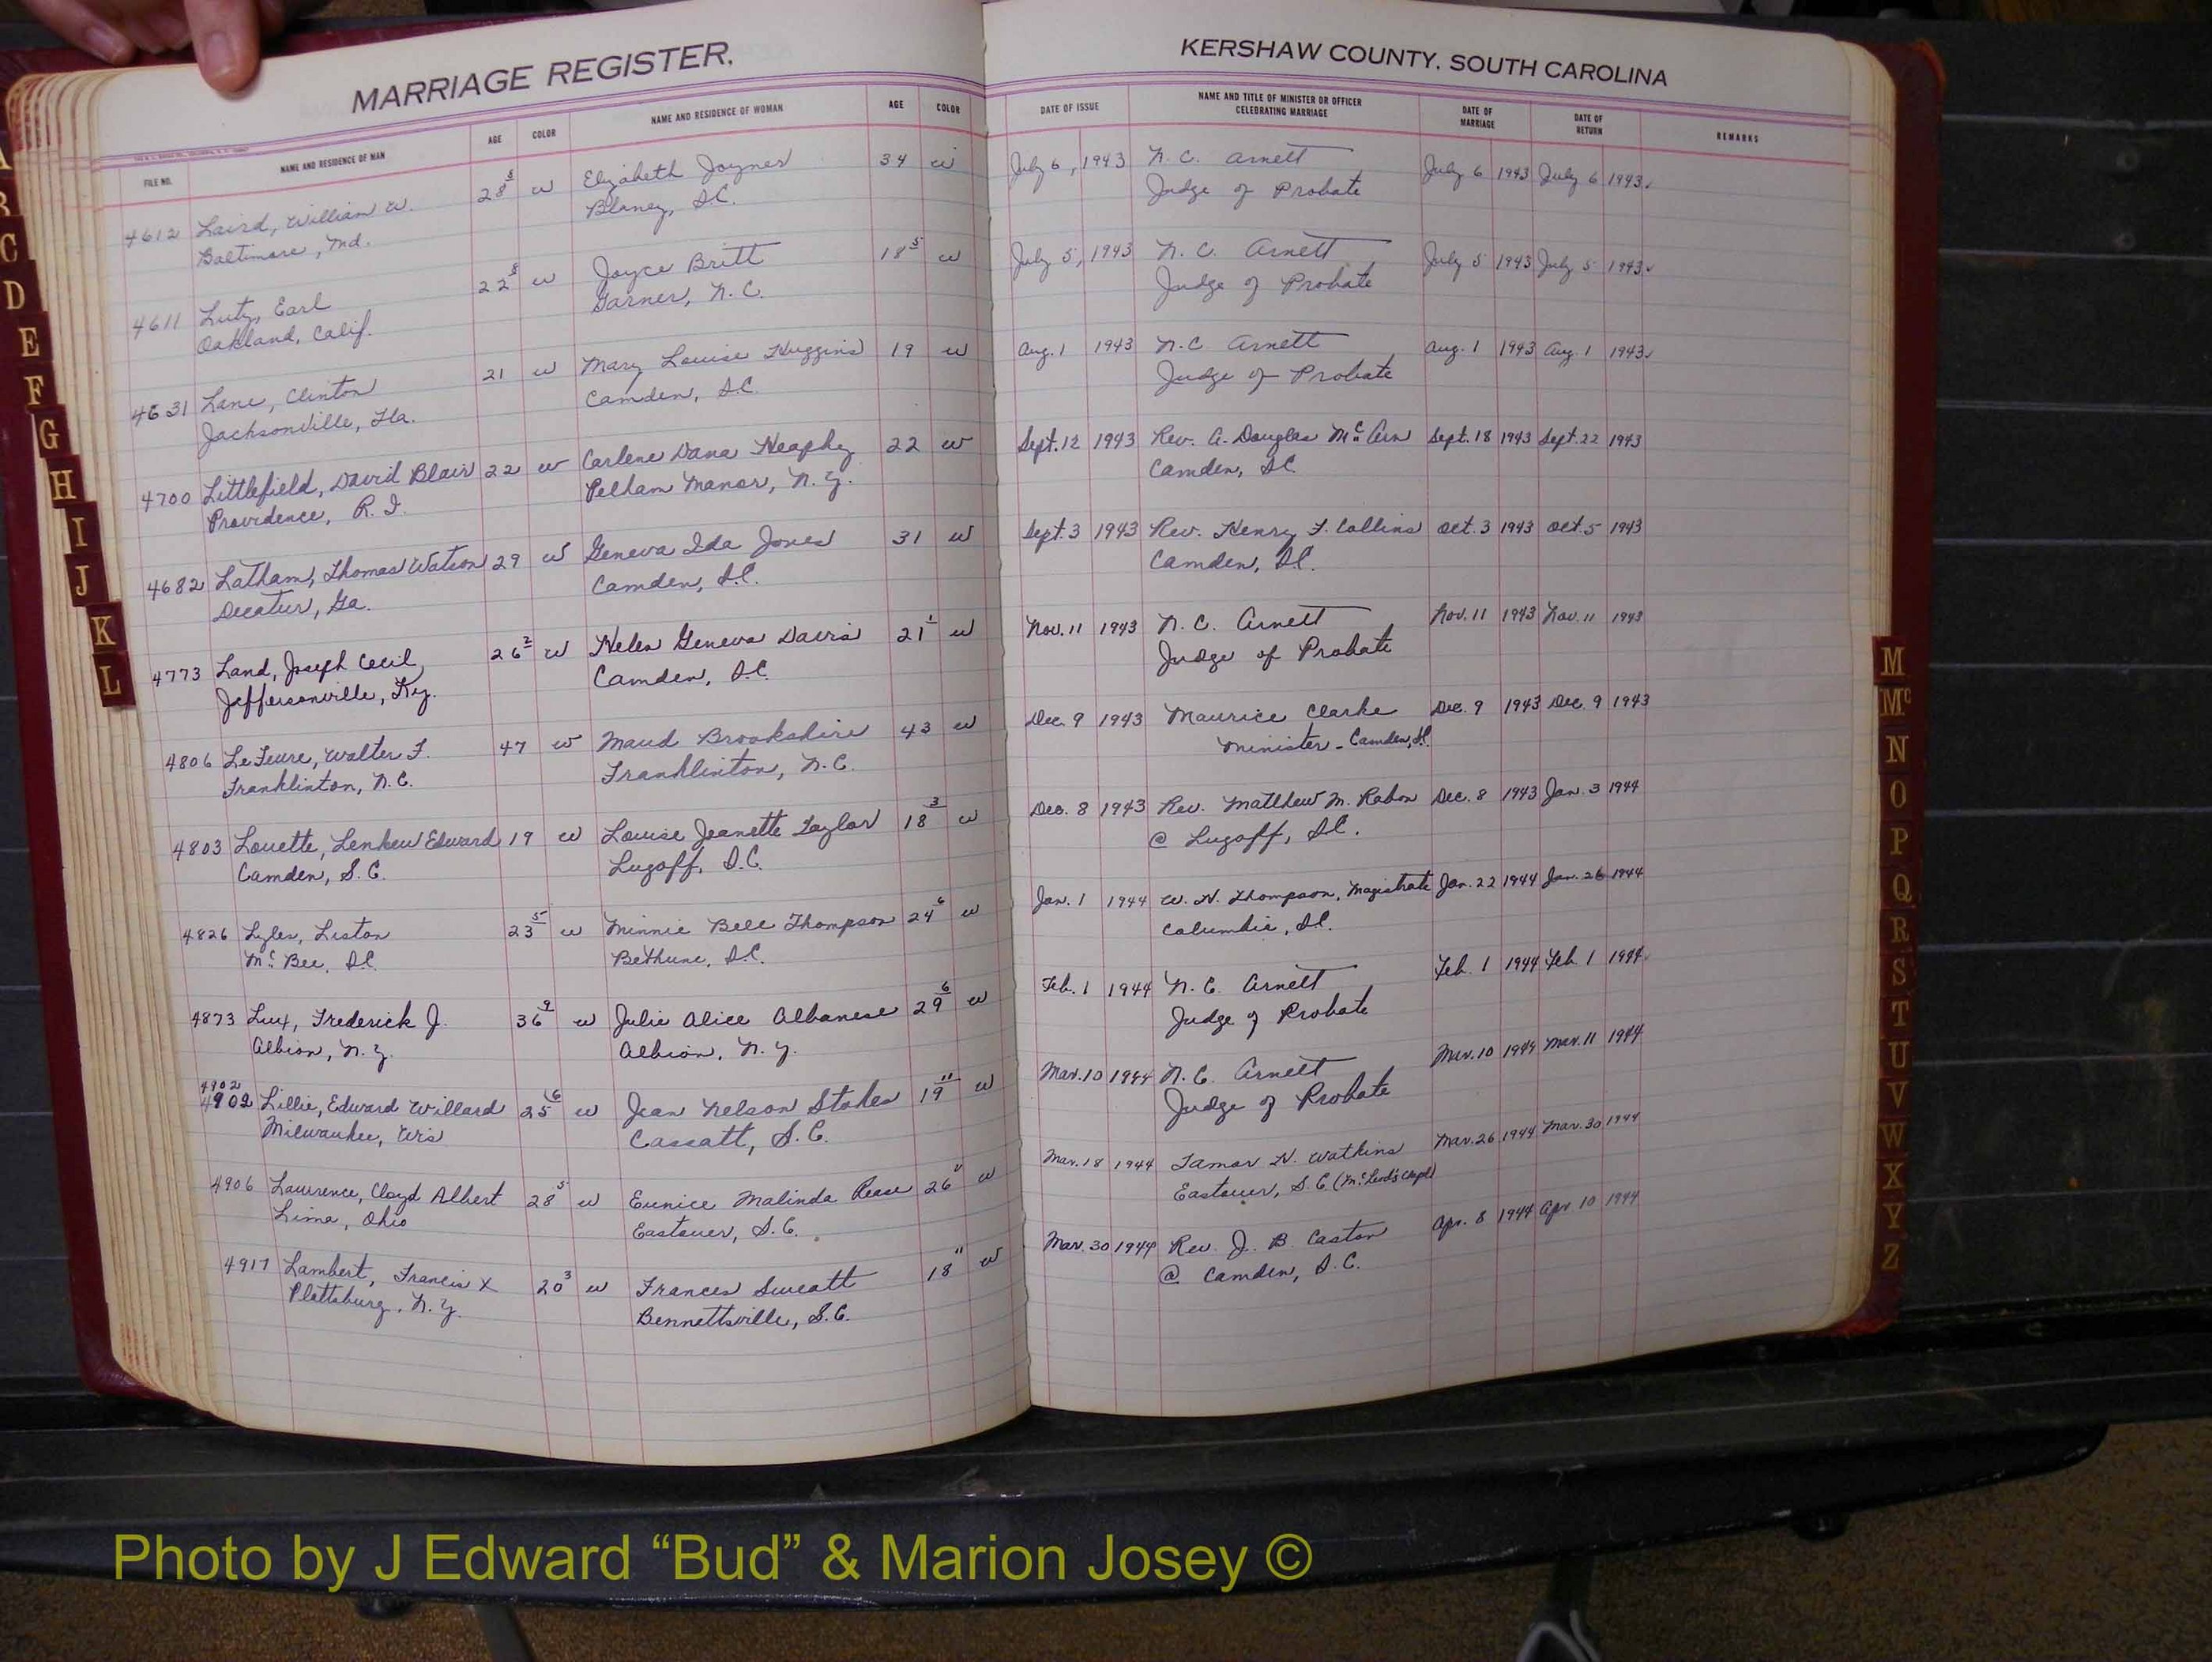 MARRIAGE REGISTER, KERSHAW COUNTY, SOUTH CAROLINA
FILE NO. NAME AND RESIDENCE OF MAN AGE COLOR NAME AND RESIDENCE OF WOMAN AGE COLOR DATE OF ISSUE NAME AND TITLE OF MINISTER OR OFFICER CELEBRATING MARRIAGE DATE OF MARRIAGE DATE OF RETURN REMARKS
4612 Laird, William W. 28 8 w Elizabeth Joyner 34 w July 6, 1943 N. C. Arnett July 6 1943 July 6 1943
Baltimore, Md. Blaney, S.C. Judge of Probate
4611 Lutz, Earl 22 8 w Joyce Britt 18 5 w July 5, 1943 N. C. Arnett July 5 1943 July 5 1943
Oakland, Calif. Garner, N.C. Judge of Probate
4631 Lane, Clinton 21 w Mary Louise Huggins 19 w Aug. 1 1943 N.C. Arnett Aug. 1 1943 Aug. 1 1943
Jacksonville, Fla. Camden, S.C. Judge of Probate
4700 Littlefield, David Blair 22 w Carlene Dana Heaphy 22 w Sept. 12 1943 Rev. A. Douglas Sept. 18 1943 Sept. 22 1943
Providence, R. I. Pelham Manor, N. Y. Camden, S.C.
4682 Latham, Thomas Watson 29 w Geneva Ida Jones 31 w Sept. 3 1943 Rev. Henry F. Collins Oct. 3 1943 Oct. 5 1943
Decatur, Ga. Camden, S.C. Camden, S.C.
4773 Land, Joseph Cecil 26 2 w Helen Geneva Davis 21 1 w Nov. 11 1943 N. C. Arnett Nov. 11 1943 Nov. 11 1943
Jeffersonville, Ky. Camden, S.C. Judge of Probate
4806 LeFeure, Walter F. 47 w Maud Brookshire 43 w Dec. 9 1943 Maurice Clarke Dec. 9 1943 Dec. 9 1943
Franklinton, N.C. Franklinton, N.C. Minister - Camden, S.C.
4803 Edward 19 w Louise Jeanette Taylor 18 3 w Dec. 8 1943 Rev. Matthew M. Rabon Dec. 8 1943 Jan. 3 1944
Camden, S.C. Lugoff, S.C. @ Lugoff, S.C.
4826 Lyles, Liston 23 5 w Minnie Bell Thompson 24 6 w Jan. 1 1944 W. N. Thompson, Magistrate Jan. 22 1944 Jan. 26 1944
Mc Bee, S.C. Bethune, S.C. Columbia, S.C.
4873 Lux, Frederick J. 36 9 w Julie Alice Albanese 29 6 w Feb. 1 1944 N. C. Arnett Feb. 1 1944 Feb. 1 1944
Albion, N.Y. Albion, N.Y. Judge of Probate
4902
4902 Lillie, Edward Willard 25 6 w Jean Nelson Stokes 19 11 w Mar. 10 1944 N. C. Arnett Mar. 10 1944 Mar. 11 1944
Milwaukee, Wis Cassatt, S.C. Judge of Probate
4906 Lawrence, Cloyd Albert 28 5 w Eunice Malinda 26 w Mar. 18 1944 N. Watkins Mar. 26 1944 Mar. 30 1944
Lima, Ohio Eastover, S.C. Eastover, S.C. (McLeod's Chapel)
4917 Lambert, Francis X 20 3 w Frances Sweatt 18 11 w Mar. 30 1944 Rev. J. B. Caston Apr. 8 1944 Apr. 10 1944
Plattsburg, N.Y. Bennettsville, S.C. @ Camden, S.C.
A
B
C
D
E
F
G
H
I
J
K
L
M
Mc
N
O
P
Q
R
S
T
U
V
W
X
Y
Z
Photo by J Edward “Bud” & Marion Josey ©